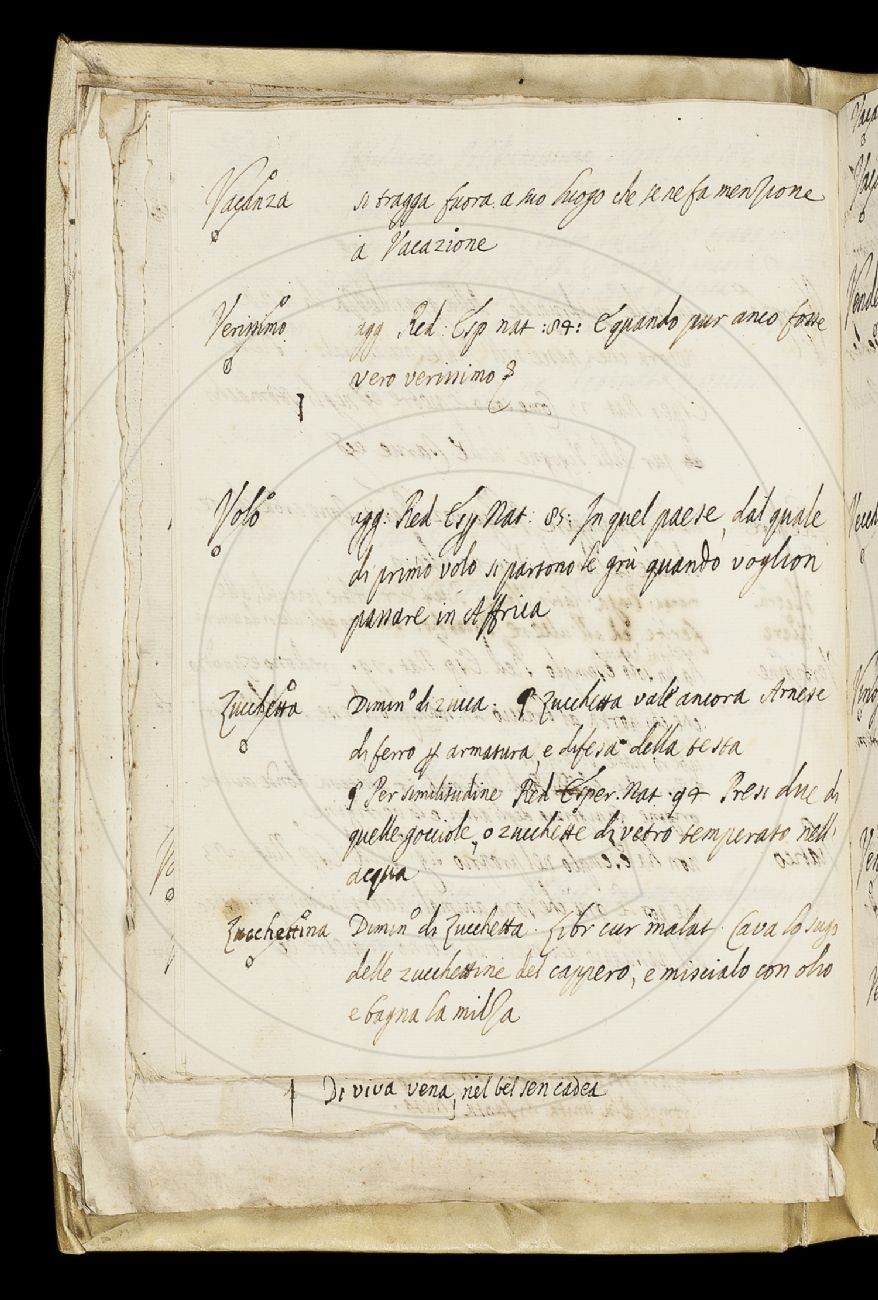 Vacanza si tragga fuora a suo luogo che se ne fa menzione
a Vacazione
Verissimo agg. Red: Esp nat: 84: E quando pur anco fosse
vero verissimo
Volo agg: Red Esp Nat: 85: In quel paese, dal quale
di primo volo si partono le grù quando voglion
passare in Affrica
Zucchetta Dimin.o di zucca: ¶ Zucchetta vale ancora Arnese
di ferro p armatura, e difesa della testa
¶ Per similitudine Red Esper. Nat. 94 Presi due di
quelle gocciole, o zucchette di vetro temperato nell'
acqua
Zucchettina Dimin.o di Zucchetta. Libr cur malat. Cava lo sugo
delle zucchettine del cappero, e miscialo con olio
e bagna la milza
Di viva vena, nel bel sen cadea